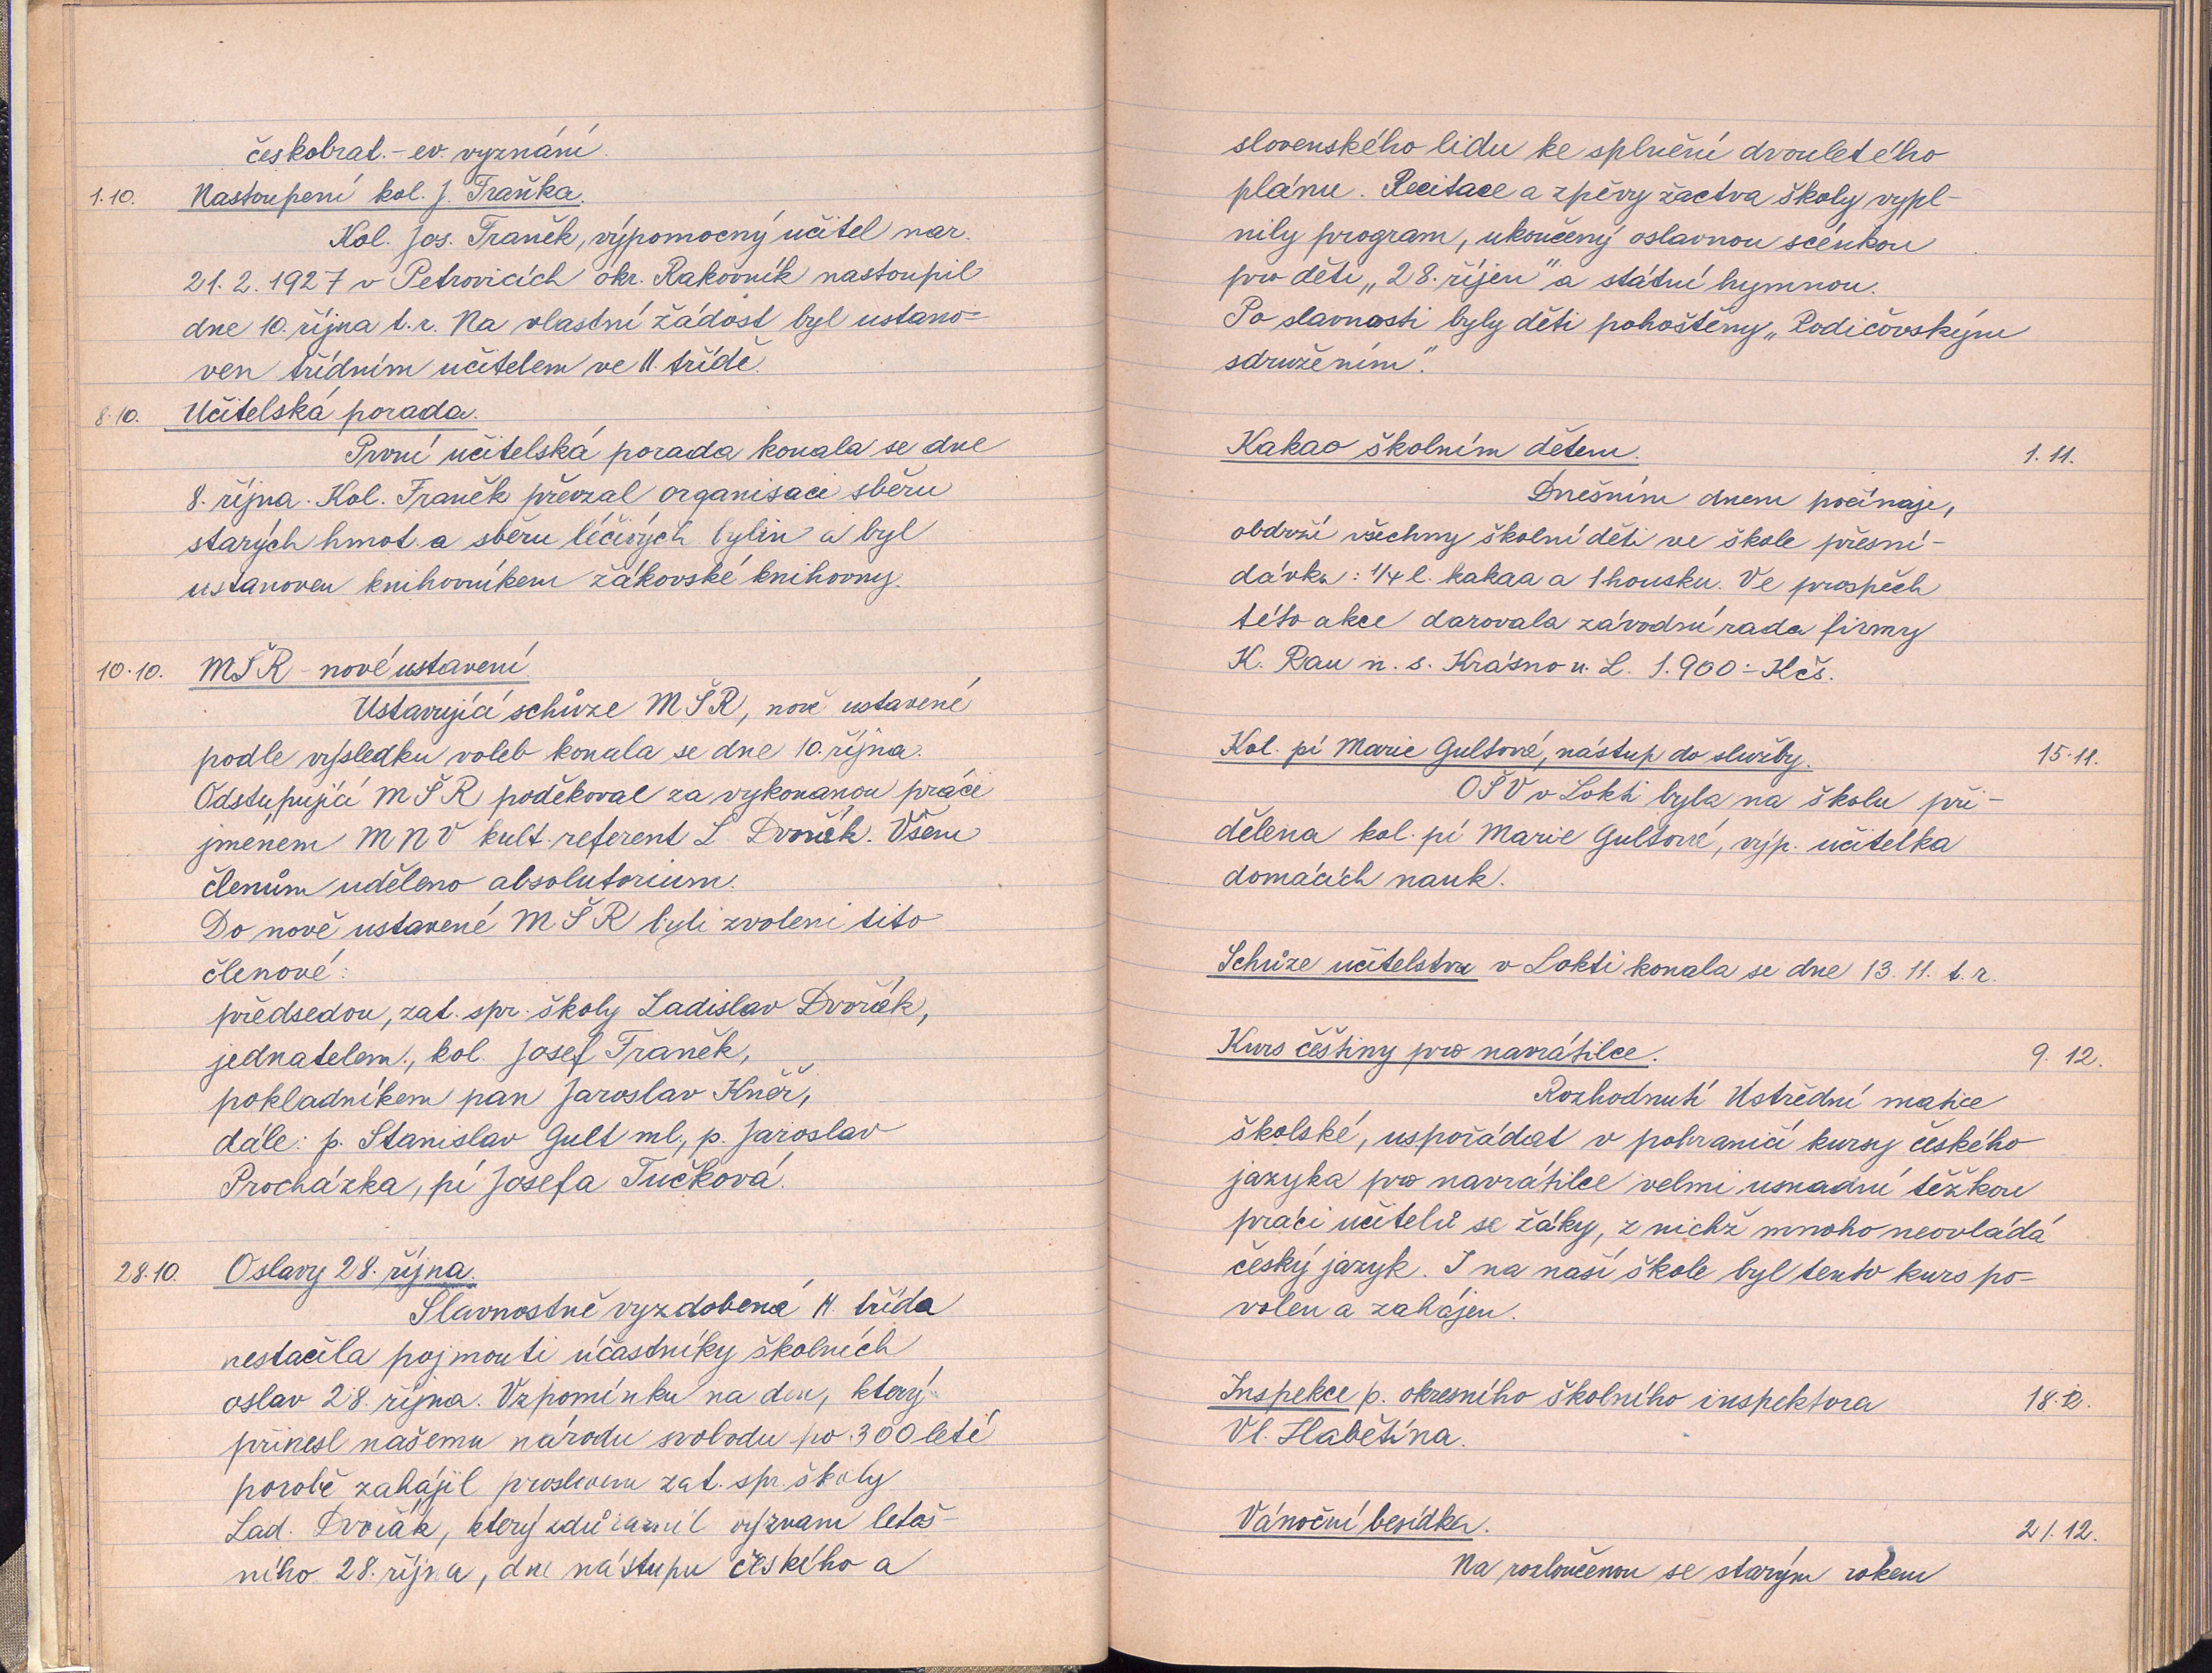 českobrat.-ev. vyznání.
1.10. Nastoupení kol. J. Traňka.
Kol. Jos. Traněk, výpomocný učitel nar.
21. 2. 1927 v Petrovicích okr. Rakovník nastoupil
dne 10. října t. r. Na vlastní žádost byl ustano=
ven třídním učitelem ve II. třídě.
8.10. Učitelská porada.
První učitelská porada konala se dne
8. října. Kol. Traněk převzal organisaci sběru
starých hmot a sběru léčivých bylin a byl
ustanoven knihovníkem žákovské knihovny.
10.10. MŠR - nové ustavení.
Ustavující schůze MŠR, nově ustavené
podle výsledku voleb konala se dne 10. října.
Odstupující MŠR poděkoval za vykonanou práci
jménem MNV kult. referent L. Dvořák. Všem
členům uděleno absolutorium.
Do nově ustavené MŠR byli zvoleni tito
členové:
předsedou, zat. spr. školy Ladislav Dvořák,
jednatelem, kol. Josef Traněk,
pokladníkem pan Jaroslav Kněř,
dále: p. Stanislav Gult ml., p. Jaroslav
Procházka, pí Josefa Tučková.
28.10. Oslavy 28. října.
Slavnostně vyzdobená II. třída
nestačila pojmouti účastníky školních
oslav 28. října. Vzpomínku na den, který
přinesl našemu národu svobodu po 300 leté
porobě zahájil proslovem zat. spr. školy
Lad. Dvořák, který zdůraznil význam letoš-
ního 28. října, dne nástupu českého a
slovenského lidu ke splnění dvouletého
plánu. Recitace a zpěvy žactva školy vypl-
nily program, ukončený oslavnou scénkou
pro děti „28. říjen" a státní hymnou.
Po slavnosti byly děti pohoštěny „Rodičovským
sdružením".
Kakao školním dětem. 1.11.
Dnešním dnem počínaje,
obdrží všechny školní děti ve škole přesní-
dávku: 1/4 l. kakaa a 1 housku. Ve prospěch
této akce darovala závodní rada firmy
K. Rau n. s. Krásno n. L. 1.900.- Kčs.
Kol. pí Marie Gultové, nástup do služby. 15.11.
OŠV v Lokti byla na školu při-
dělena kol. pí Marie Gultové, výp. učitelka
domácích nauk.
Schůze učitelstva v Lokti konala se dne 13. 11. t. r.
Kurs češtiny pro navrátilce. 9. 12.
Rozhodnutí Ustřední matice
školské, uspořádat v pohraničí kursy českého
jazyka pro navrátilce velmi usnadní těžkou
práci učitelů se žáky, z nichž mnoho neovládá
český jazyk. I na naší škole byl tento kurs po-
volen a zahájen.
Inspekce p. okresního školního inspektora 18.12.
Vl. Habětína.
Vánoční besídka. 21.12.
Na rozloučenou se starým rokem